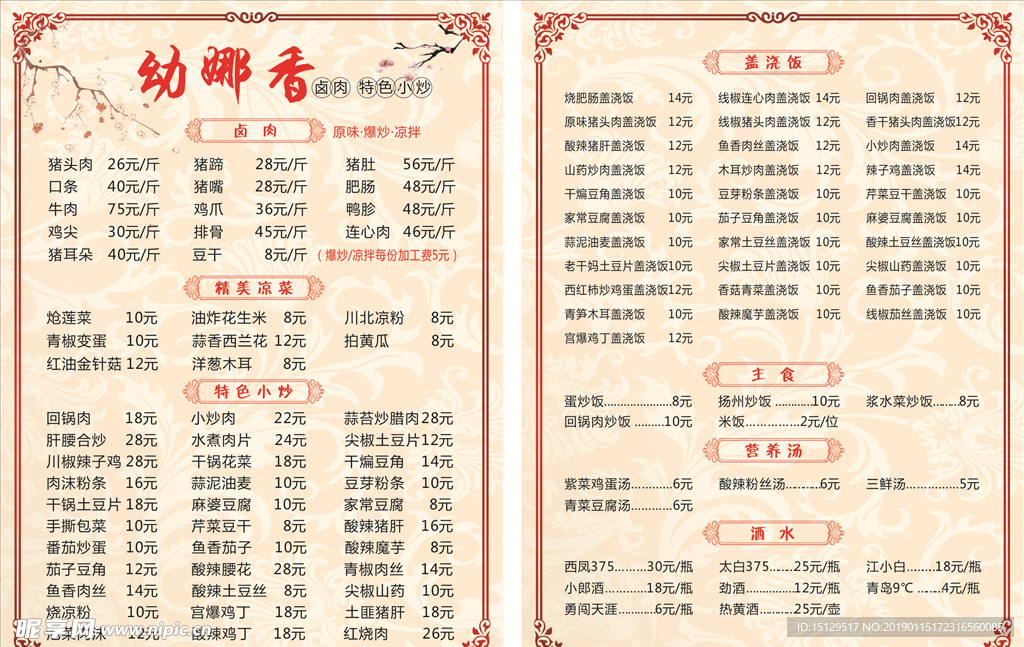 幼娜香
卤肉 特色小炒
卤肉
原味·爆炒·凉拌
猪头肉 26元/斤 猪蹄 28元/斤 猪肚 56元/斤
口条 40元/斤 猪嘴 28元/斤 肥肠 48元/斤
牛肉 75元/斤 鸡爪 36元/斤 鸭胗 48元/斤
鸡尖 30元/斤 排骨 45元/斤 连心肉 46元/斤
猪耳朵 40元/斤 豆干 8元/斤 (爆炒/凉拌每份加工费5元)
精美凉菜
炝莲菜 10元 油炸花生米 8元 川北凉粉 8元
青椒变蛋 10元 蒜香西兰花 12元 拍黄瓜 8元
红油金针菇 12元 洋葱木耳 8元
特色小炒
回锅肉 18元 小炒肉 22元 蒜苔炒腊肉 28元
肝腰合炒 28元 水煮肉片 24元 尖椒土豆片 12元
川椒辣子鸡 28元 干锅花菜 18元 干煸豆角 14元
肉沫粉条 16元 蒜泥油麦 10元 豆芽粉条 10元
干锅土豆片 18元 麻婆豆腐 10元 家常豆腐 8元
手撕包菜 10元 芹菜豆干 8元 酸辣猪肝 16元
番茄炒蛋 10元 鱼香茄子 10元 酸辣魔芋 8元
茄子豆角 12元 酸辣腰花 28元 青椒肉丝 14元
鱼香肉丝 14元 酸辣土豆丝 8元 尖椒山药 10元
烧凉粉 10元 宫爆鸡丁 18元 土匪猪肝 18元
酸辣鸡丁 18元 红烧肉 26元
盖浇饭
烧肥肠盖浇饭 14元 线椒连心肉盖浇饭 14元 回锅肉盖浇饭 12元
原味猪头肉盖浇饭 12元 线椒猪头肉盖浇饭 12元 香干猪头肉盖浇饭 12元
酸辣猪肝盖浇饭 12元 鱼香肉丝盖浇饭 12元 小炒肉盖浇饭 14元
山药炒肉盖浇饭 12元 木耳炒肉盖浇饭 12元 辣子鸡盖浇饭 14元
干煸豆角盖浇饭 10元 豆芽粉条盖浇饭 10元 芹菜豆干盖浇饭 10元
家常豆腐盖浇饭 10元 茄子豆角盖浇饭 10元 麻婆豆腐盖浇饭 10元
蒜泥油麦盖浇饭 10元 家常土豆丝盖浇饭 10元 酸辣土豆丝盖浇饭 10元
老干妈土豆片盖浇饭 10元 尖椒土豆片盖浇饭 10元 尖椒山药盖浇饭 10元
西红柿炒鸡蛋盖浇饭 12元 香菇青菜盖浇饭 10元 鱼香茄子盖浇饭 10元
青笋木耳盖浇饭 10元 酸辣魔芋盖浇饭 10元 线椒茄丝盖浇饭 10元
宫爆鸡丁盖浇饭 12元
主食
蛋炒饭......................8元 扬州炒饭 ............10元 浆水菜炒饭.........8元
回锅肉炒饭 .........10元 米饭...............2元/位
营养汤
紫菜鸡蛋汤............6元 酸辣粉丝汤..........6元 三鲜汤...............5元
青菜豆腐汤............6元
酒水
西凤375.........30元/瓶 太白375......25元/瓶 江小白........18元/瓶
小郎酒............18元/瓶 劲酒..............12元/瓶 青岛9℃ .......4元/瓶
勇闯天涯...........6元/瓶 热黄酒..........25元/壶
昵享网 www.nipic.cn
ID:15129517 NO:20190115172316560085